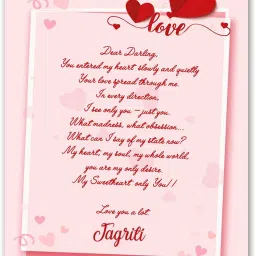 love
Dear Darling,
You entered my heart slowly and quietly
Your love spread through me.
In every direction,
I see only you – just you.
What madness, what obsession...
What can I say of my state now?
My heart, my soul, my whole world,
you are my only desire.
My Sweetheart only You!!
Love you a lot
Jagriti